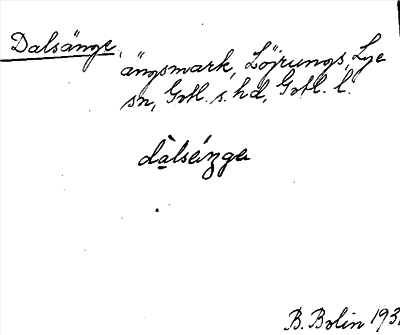 Dalsänge,
ängsmark, Löjrungs, Lye
sn, Gotl. s. hd, Gotl. l.
dàlséŋga
B. Bolin 193